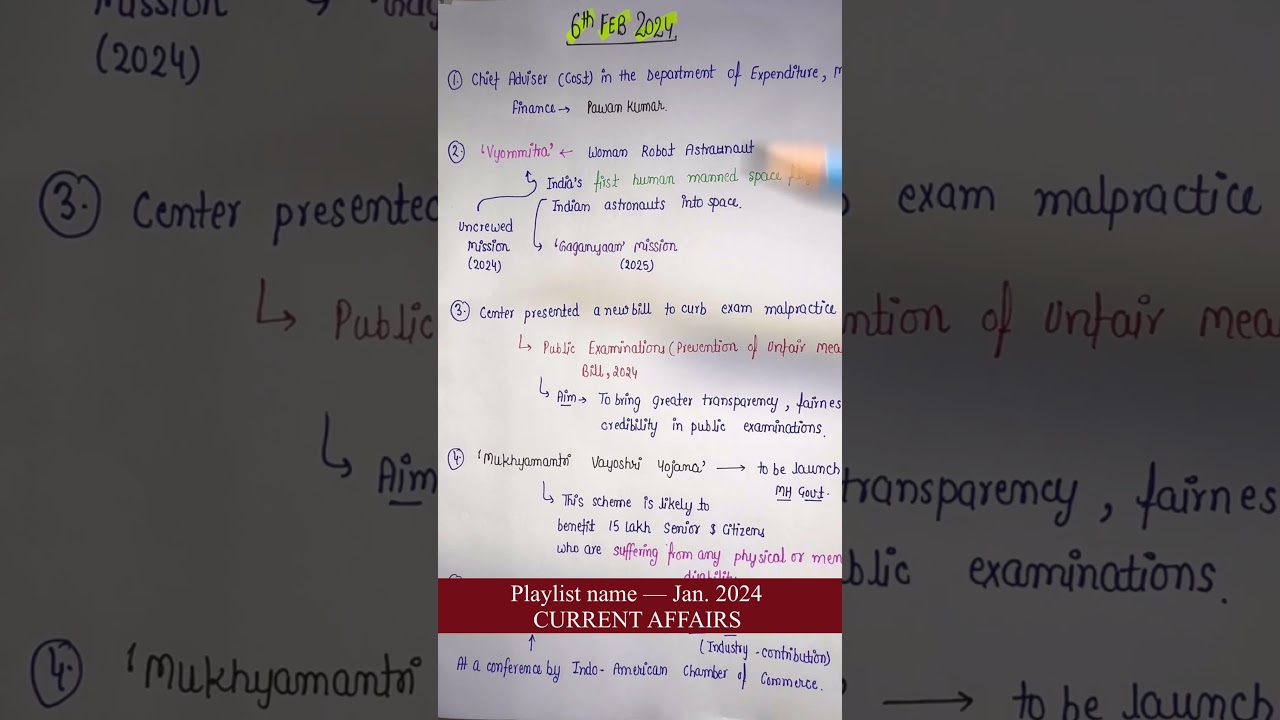 6th FEB 2024.
1. Chief Adviser (Cost) in the Department of Expenditure, M
Finance → Pawan Kumar.
2. 'Vyommitra' ← Woman Robot Astraunaut
India's first human manned space
Indian astronauts into space.
Uncrewed
Mission
(2024)
'Gaganyaan' Mission
(2025)
3. Center presented a new bill to curb exam malpractice
↳ Public Examinations (Prevention of Unfair Mea
Bill, 2024
↳ Aim → To bring greater transparency, fairnes
credibility in public examinations.
4. 'Mukhyamantri Vayoshri Yojana' → to be launch
MH Govt.
↳ This scheme is likely to
benefit 15 Lakh Senior $ Citizens
who are suffering from any physical or men
disability
Playlist name — Jan. 2024
CURRENT AFFAIRS
(Industry - contribution)
At a conference by Indo- American Chamber of Commerce.
Mission
(2024)
3. Center presented
exam malpractice
↳ Public
ntion of Unfair Mea
↳ Aim
transparency, fairnes
blic examinations.
4. 'Mukhyamantri
→ to be launch